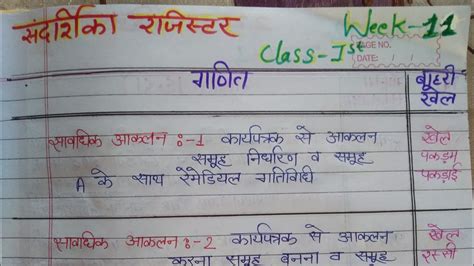 संदर्शिका राजिस्टर
Week-11
Class-Ist
PAGE NO.
DATE: / /
गणित
बाहरी खेल
सावधिक आकलन :-1 कार्यपत्रक से आकलन
समूह निर्धारण व समूह
A के साथ रेमेडियल गतिविधि
खेल
पकड़म
पकड़ाई
सावधिक आकलन :-2 कार्यपत्रक से आकलन
करना समूह बनना व समूह
खेल
रस्सी